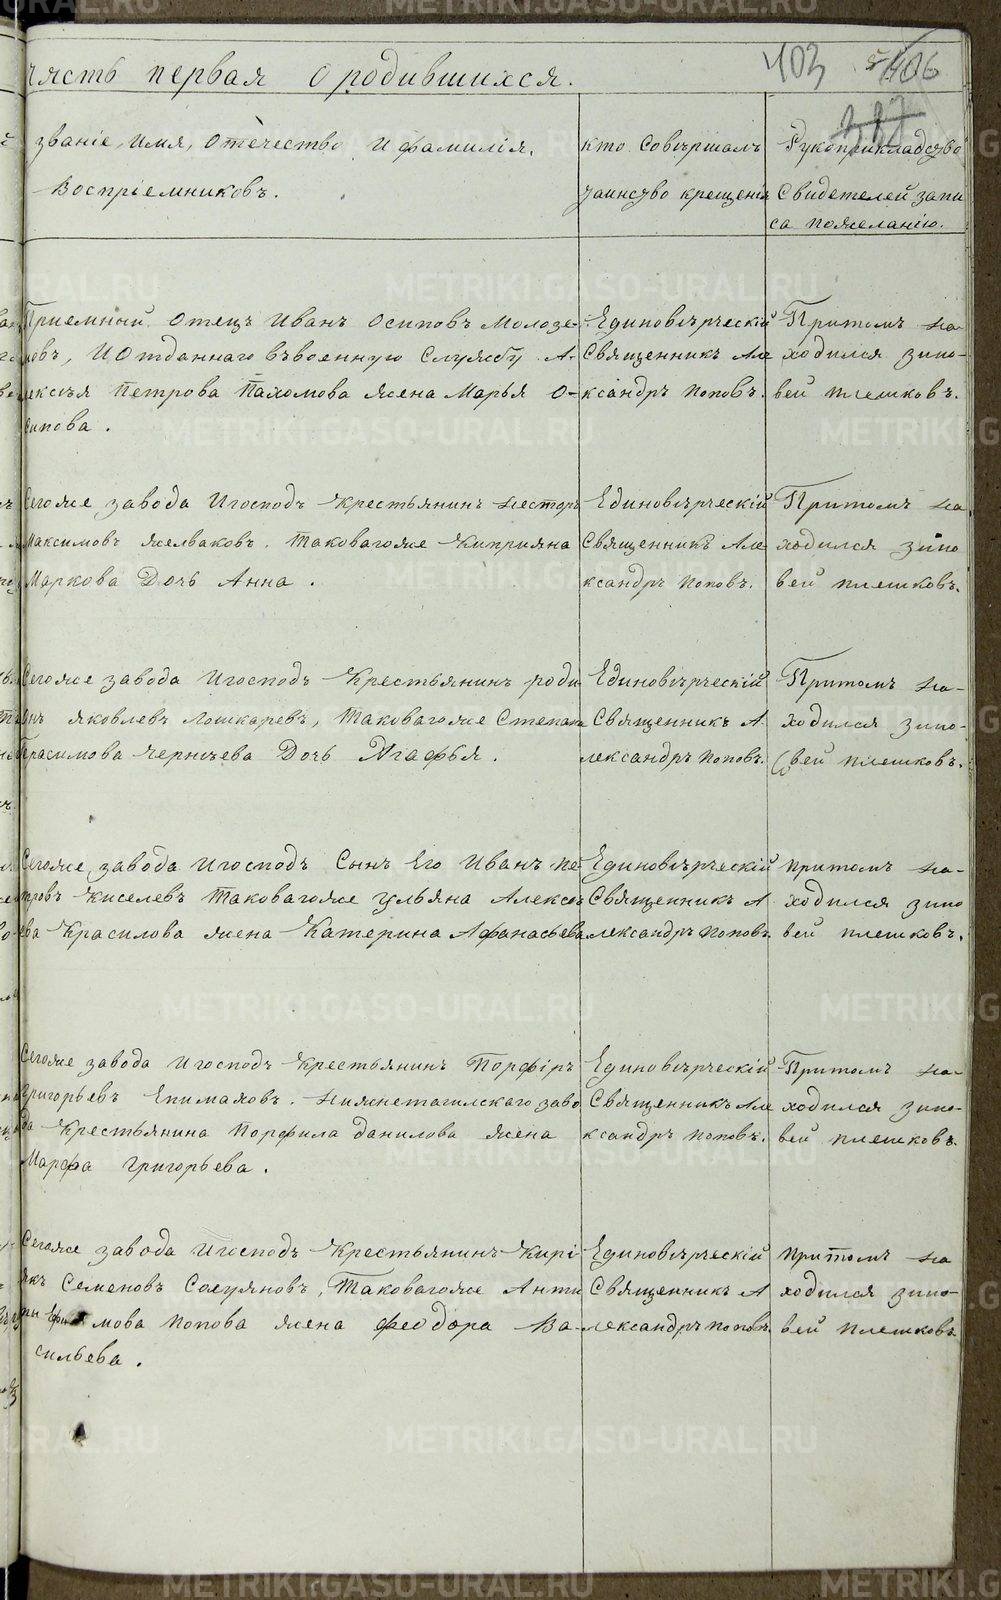 часть первая О родившихся.
403
406
званіе, Имя, Отечество И фамилія,
Воспріемниковъ.
кто Совѣршалъ
таинство крещенія
Рукоприкладство
Свидетелей запи
са пожеланію.
Приемный Отецъ Иванъ Осиповъ Молозе-
мовъ, И Отданнаго въвоенную Службу А-
лексѣя Петрова Пахомова жена Марья О-
сипова.
Единовѣрческій
Священникъ Але
ксандръ Поповъ.
Притомъ на-
ходился Зино-
вей Плешковъ.
Сегоже завода Игосподъ Крестьянинъ Несторъ
Максимовъ Желваковъ. Таковагоже Киприяна
Маркова Дочь Анна.
Единовѣрческій
Священникъ Але
ксандръ Поповъ.
Притомъ на
ходился Зино
вей Плешковъ.
Сегоже завода Игосподъ Крестьянинъ роди
онъ Яковлевъ Лошкаревъ, Таковагоже Степана
Герасимова Чернѣева Дочь Агафья.
Единовѣрческій
Священникъ А
лександръ Поповъ.
Притомъ на-
ходился Зино-
вей Плешковъ.
Сегоже завода Игосподъ Сынъ Его Иванъ Пе
тровъ Киселевъ Таковагоже Ульяна Алексѣ
ева Красилова жена Катерина Афанасьева
Единовѣрческій
Священникъ А
лександръ Поповъ.
Притомъ на-
ходился Зино
вей Плешковъ.
Сегоже завода Игосподъ Крестьянинъ Порфіръ
Григорьевъ Епимаховъ. Нижнетагилскаго заво
да Крестьянина Порфила Данилова жена
Марфа Григорьева.
Единовѣрческій
Священникъ Але
ксандръ Поповъ.
Притомъ на-
ходился Зино-
вей Плешковъ.
Сегоже завода Игосподъ Крестьянинъ Кирі
якъ Семеновъ Солуяновъ, Таковагоже Анти
пы Ефимова Попова жена Феодора Ва-
сильева.
Единовѣрческій
Священникъ А
лександръ Поповъ.
Притомъ на
ходился Зино-
вей Плешковъ
METRIKI.GASO-URAL.RU